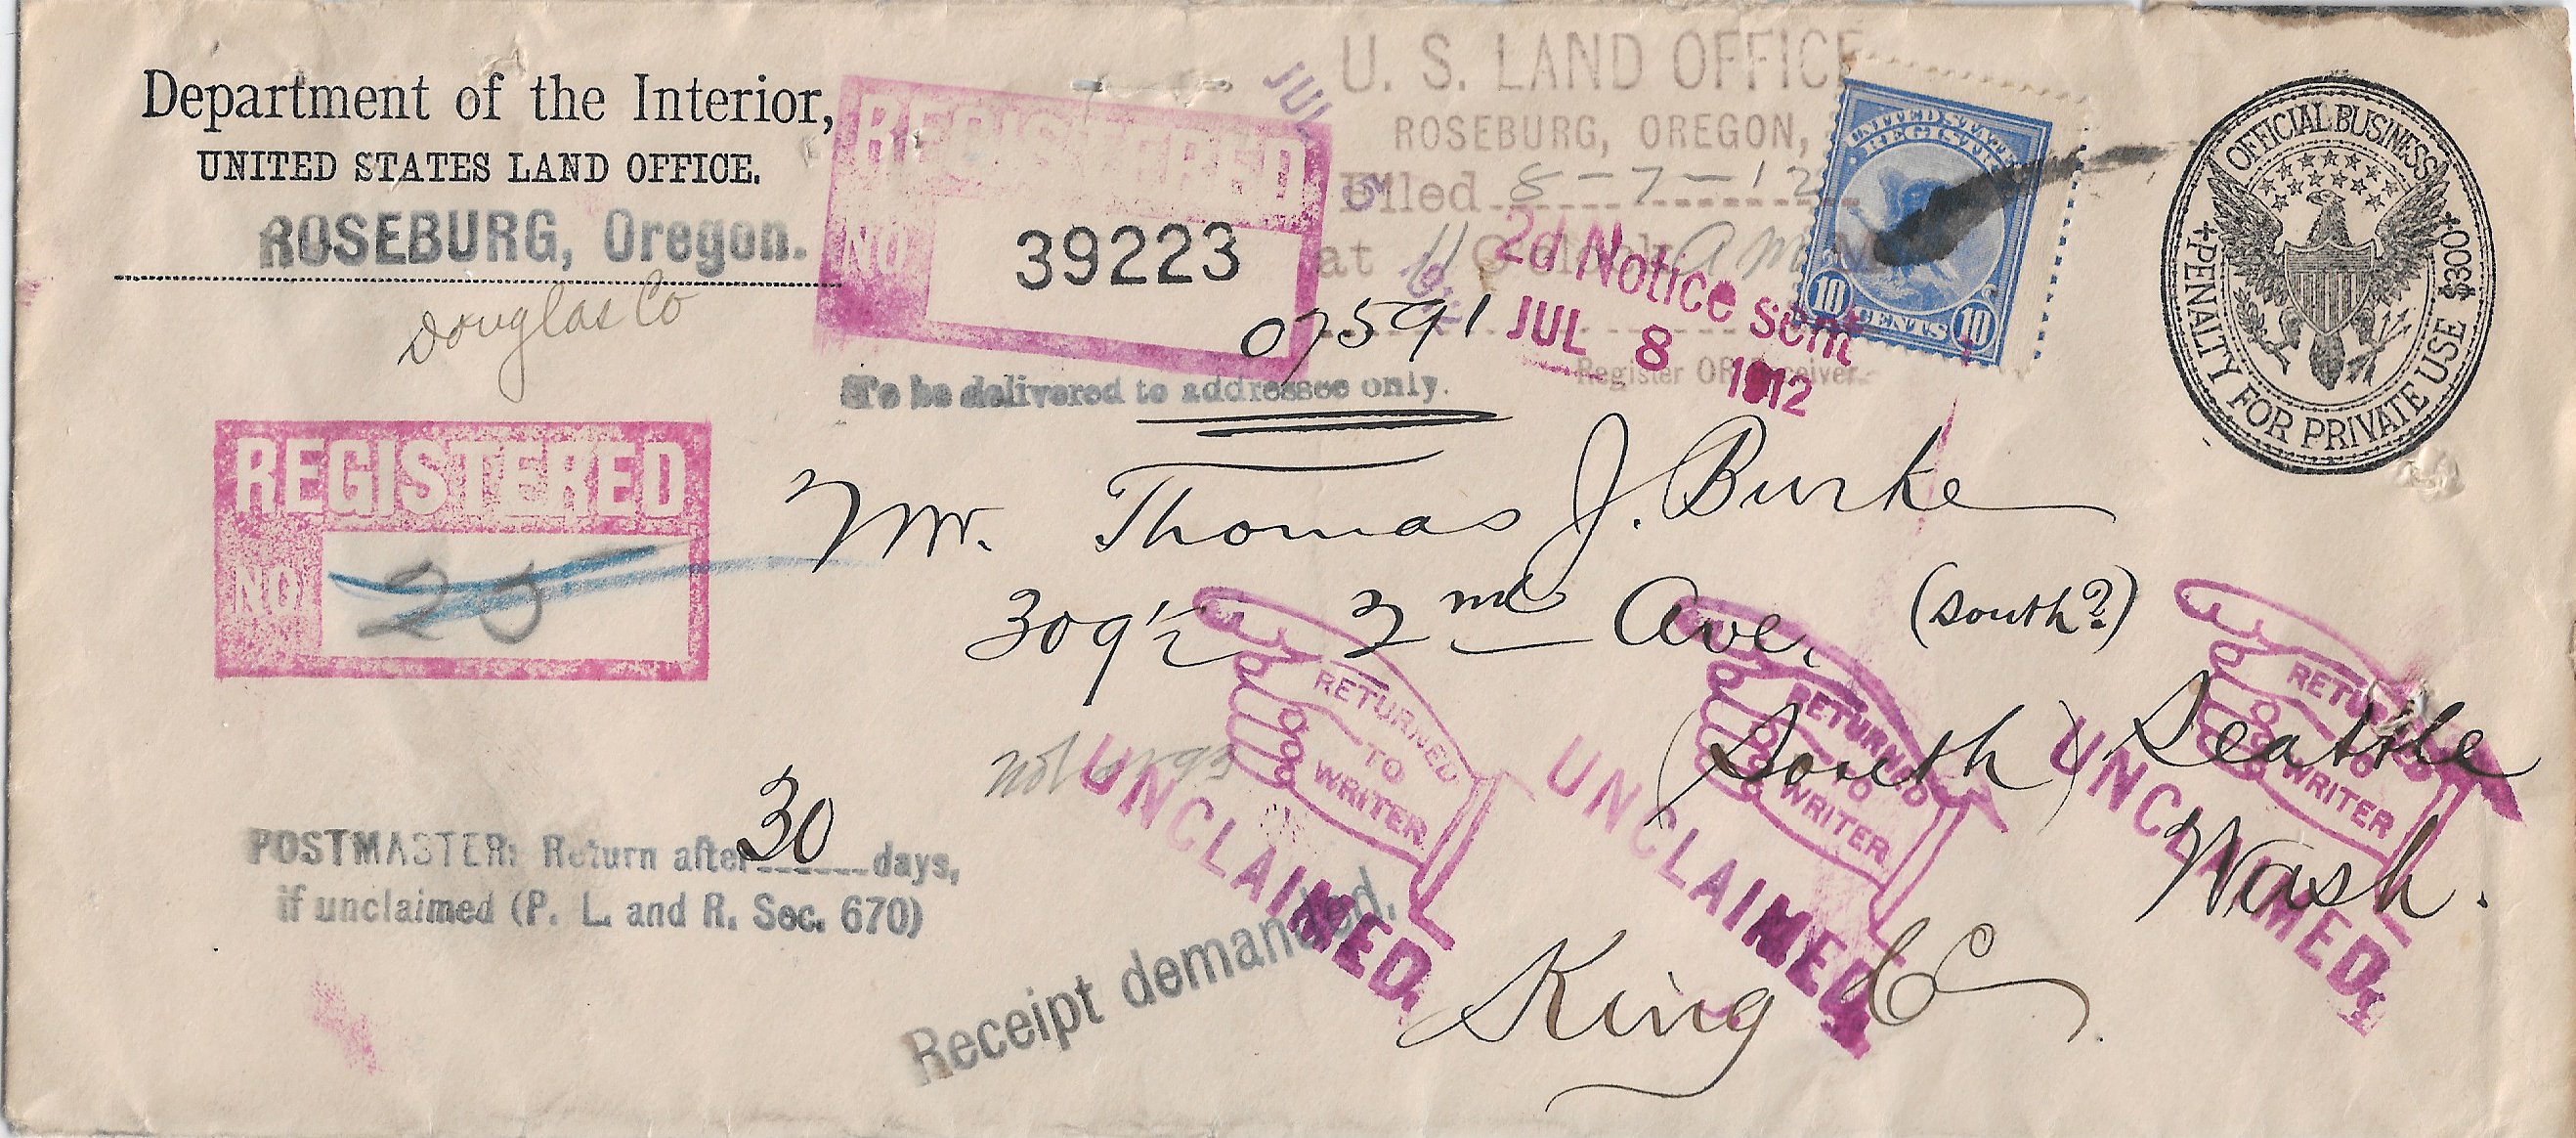 Department of the Interior,
UNITED STATES LAND OFFICE.
ROSEBURG, Oregon.
Douglas Co
REGISTERED
NO 39223
U. S. LAND OFFICE
ROSEBURG, OREGON,
Filed 8-7-12
at 11 O'clock am M
07591
Register OR Receiver.
JUL
2d Notice sent
JUL 8 1912
UNITED STATES
REGISTRY
10 CENTS 10
OFFICIAL BUSINESS
PENALTY FOR PRIVATE USE $300
To be delivered to addressee only.
REGISTERED
NO 25
Mr. Thomas J. Burke
309½ 2nd Ave. (south?)
(South) Seattle
Wash.
King Co.
RETURNED TO WRITER
UNCLAIMED.
RETURNED TO WRITER
UNCLAIMED.
RETURNED TO WRITER
UNCLAIMED.
POSTMASTER: Return after 30 days,
if unclaimed (P. L. and R. Sec. 670)
Receipt demanded.